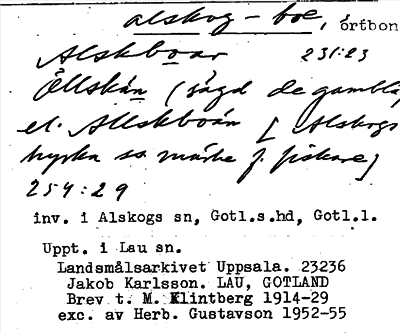 alskog-boe, ortbon
Alskboar 231:23
Ållskån (sågd de gambla,
el. Allskboån [Alskogs
kyrka ss. märke f. fiskare]
254:29
inv. i Alskogs sn, Gotl.s.hd, Gotl.l.
Uppt. i Lau sn.
Landsmålsarkivet Uppsala. 23236
Jakob Karlsson. LAU, GOTLAND
Brev t. M. Klintberg 1914-29
exc. av Herb. Gustavson 1952-55